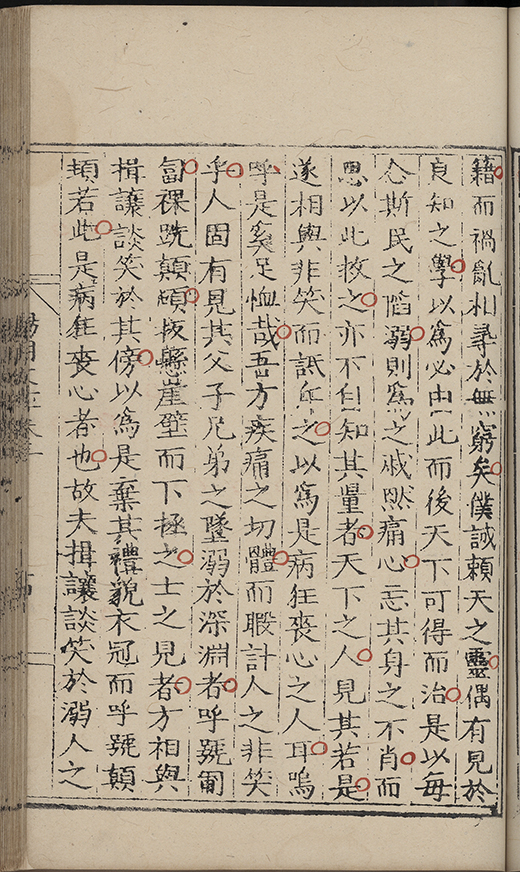 籍而禍亂相尋於無窮矣僕誠賴天之靈偶有見於
良知之學以爲必由此而後天下可得而治是以每
念斯民之陷溺則爲之戚然痛心忘其身之不肖而
思以此救之亦不自知其量者天下之人見其若是
遂相與非笑而詆斥之以爲是病狂喪心之人耳嗚
呼是奚足恤哉吾方疾痛之切體而暇計人之非笑
乎人固有見其父子兄弟之墜溺於深淵者呼號匍
匐裸跣顛頓扳懸崖壁而下拯之士之見者方相與
揖讓談笑於其傍以爲是棄其禮貌衣冠而呼號顛
頓若此是病狂喪心者也故夫揖讓談笑於溺人之